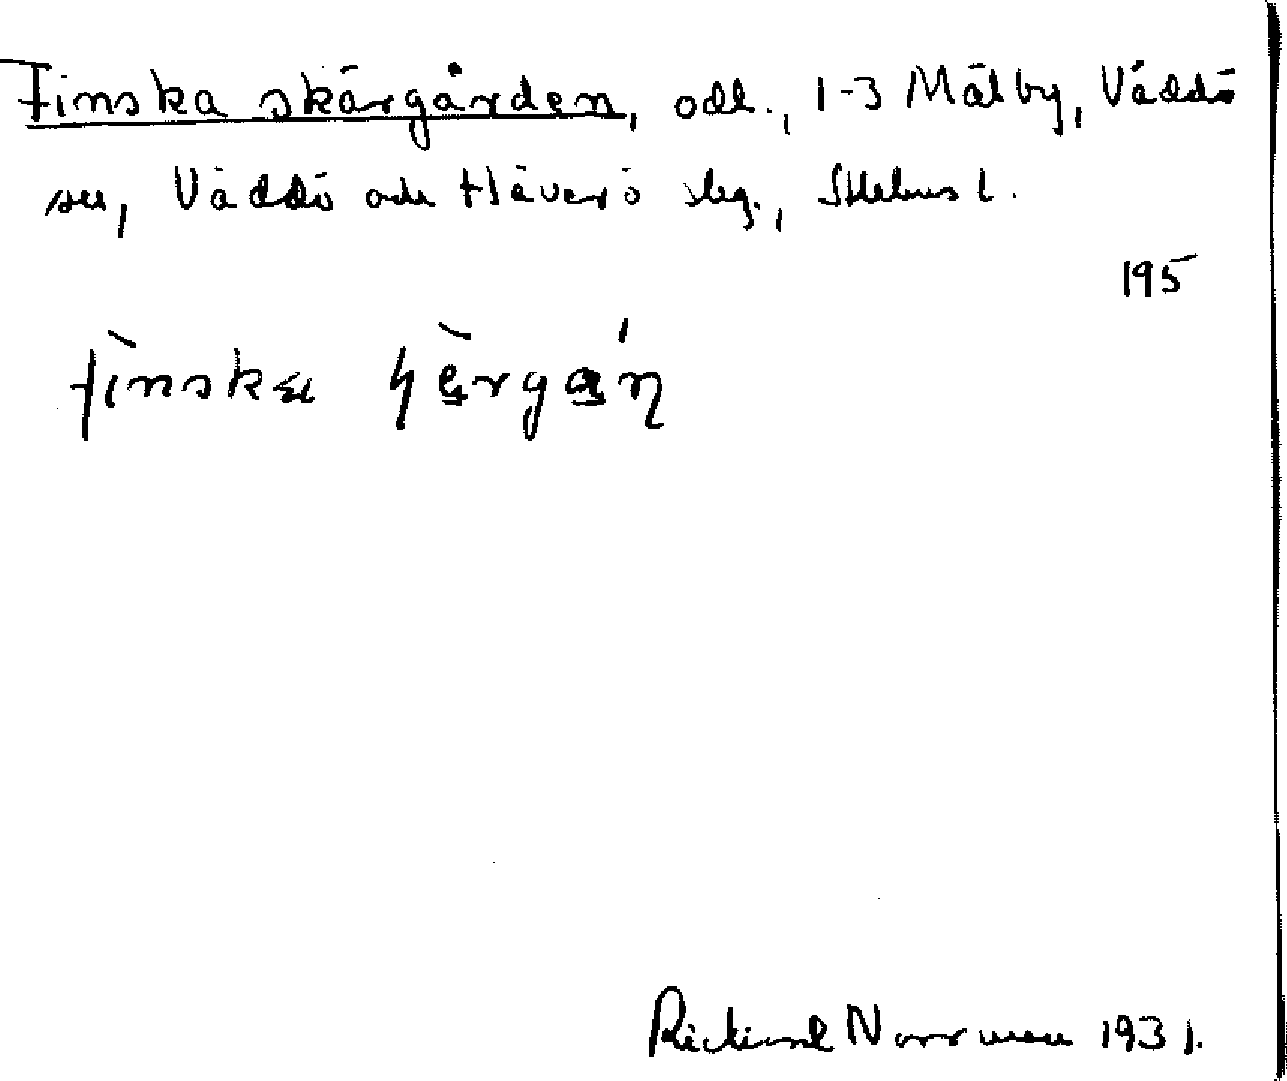 Finska skärgården, odl., 1-3 Mälby, Väddö
sn, Väddö och Häverö slg., Sthlms l.
195
fìnska
Rickard Norrman 1931.